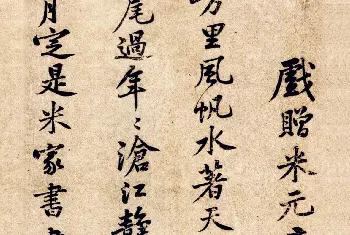 戲贈米元
万里風帆水著天
尾過年〻滄江靜
月定是米家書